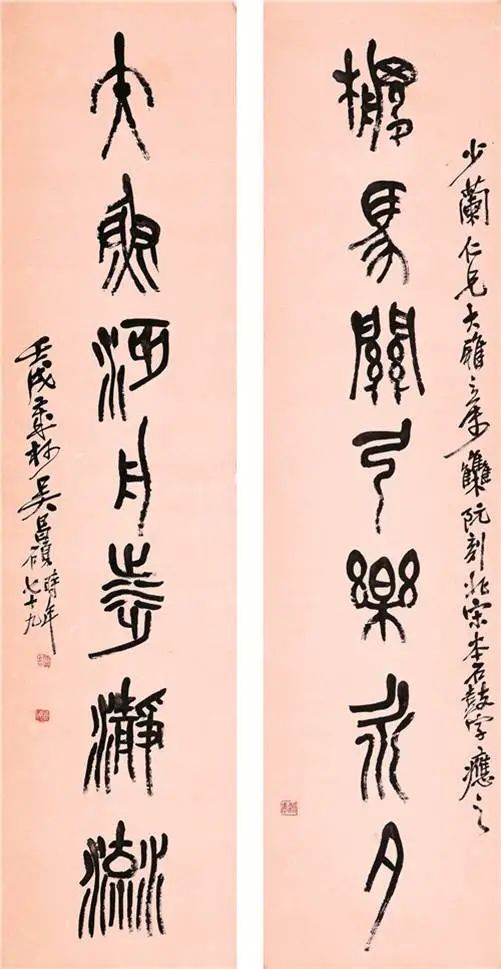 馬關弓樂永夕
少蘭仁兄大雅之屬集阮刻北宋本石鼓字應之
魚舟瀞流
壬戌春杪吳昌碩時年七十九